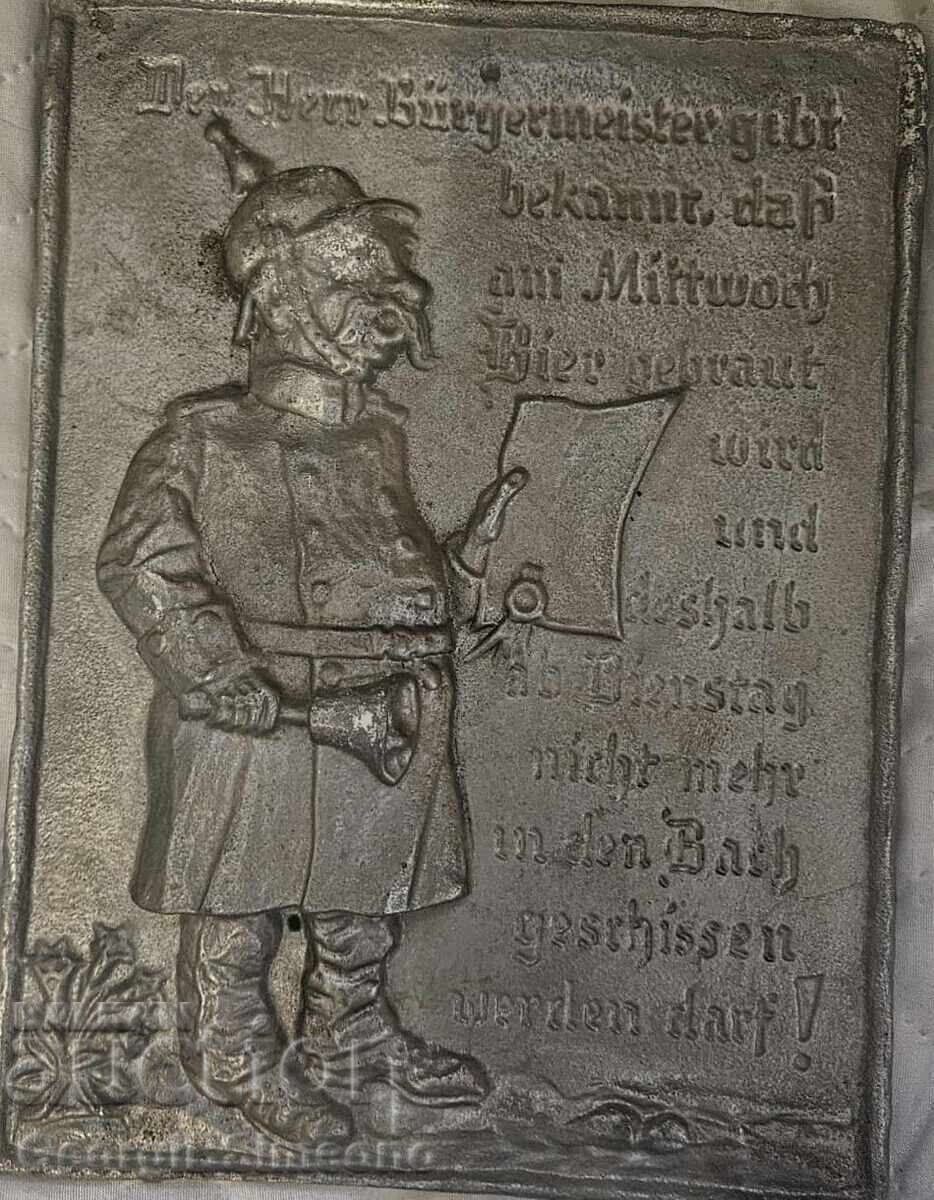 Der Herr Bürgermeister gibt
bekannt, daß
am Mittwoch
Bier gebraut
wird
und
deshalb
ab Dienstag
nicht mehr
in den Bach
geschissen
werden darf!
AUCTION
Georgi Simeono